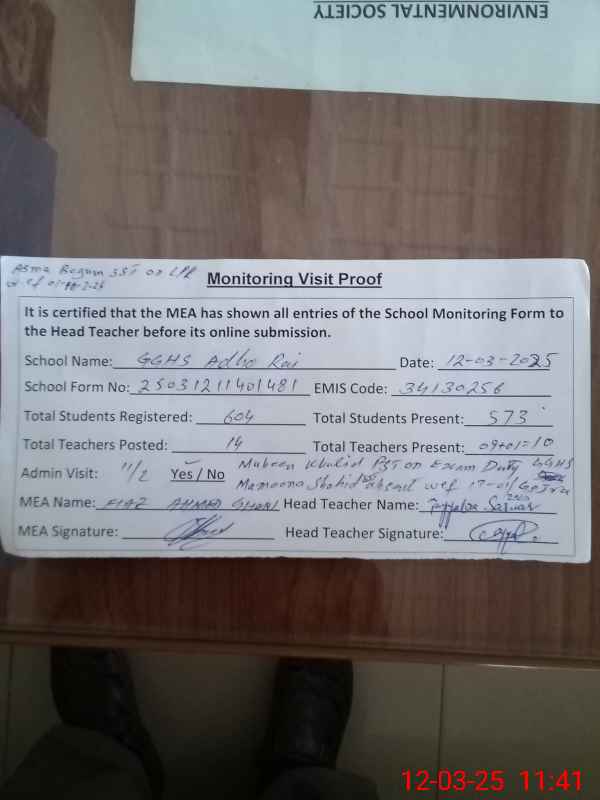 ENVIRONMENTAL SOCIETY
Asma Begum SST on LPR
Monitoring Visit Proof
It is certified that the MEA has shown all entries of the School Monitoring Form to
the Head Teacher before its online submission.
School Name: GGHS Adho Rai Date: 12-03-2025
School Form No: 25031211401481 EMIS Code: 34130256
Total Students Registered: 604 Total Students Present: 573
Total Teachers Posted: 14 Total Teachers Present: 09+01=10
Admin Visit: 11/2 Yes / No Mubeen Khalid PST on Exam Duty GGHS
Mamoona Shahid absent wef 17-01
MEA Name: FIAZ AHMED GHANI Head Teacher Name:
MEA Signature: Head Teacher Signature:
12-03-25 11:41